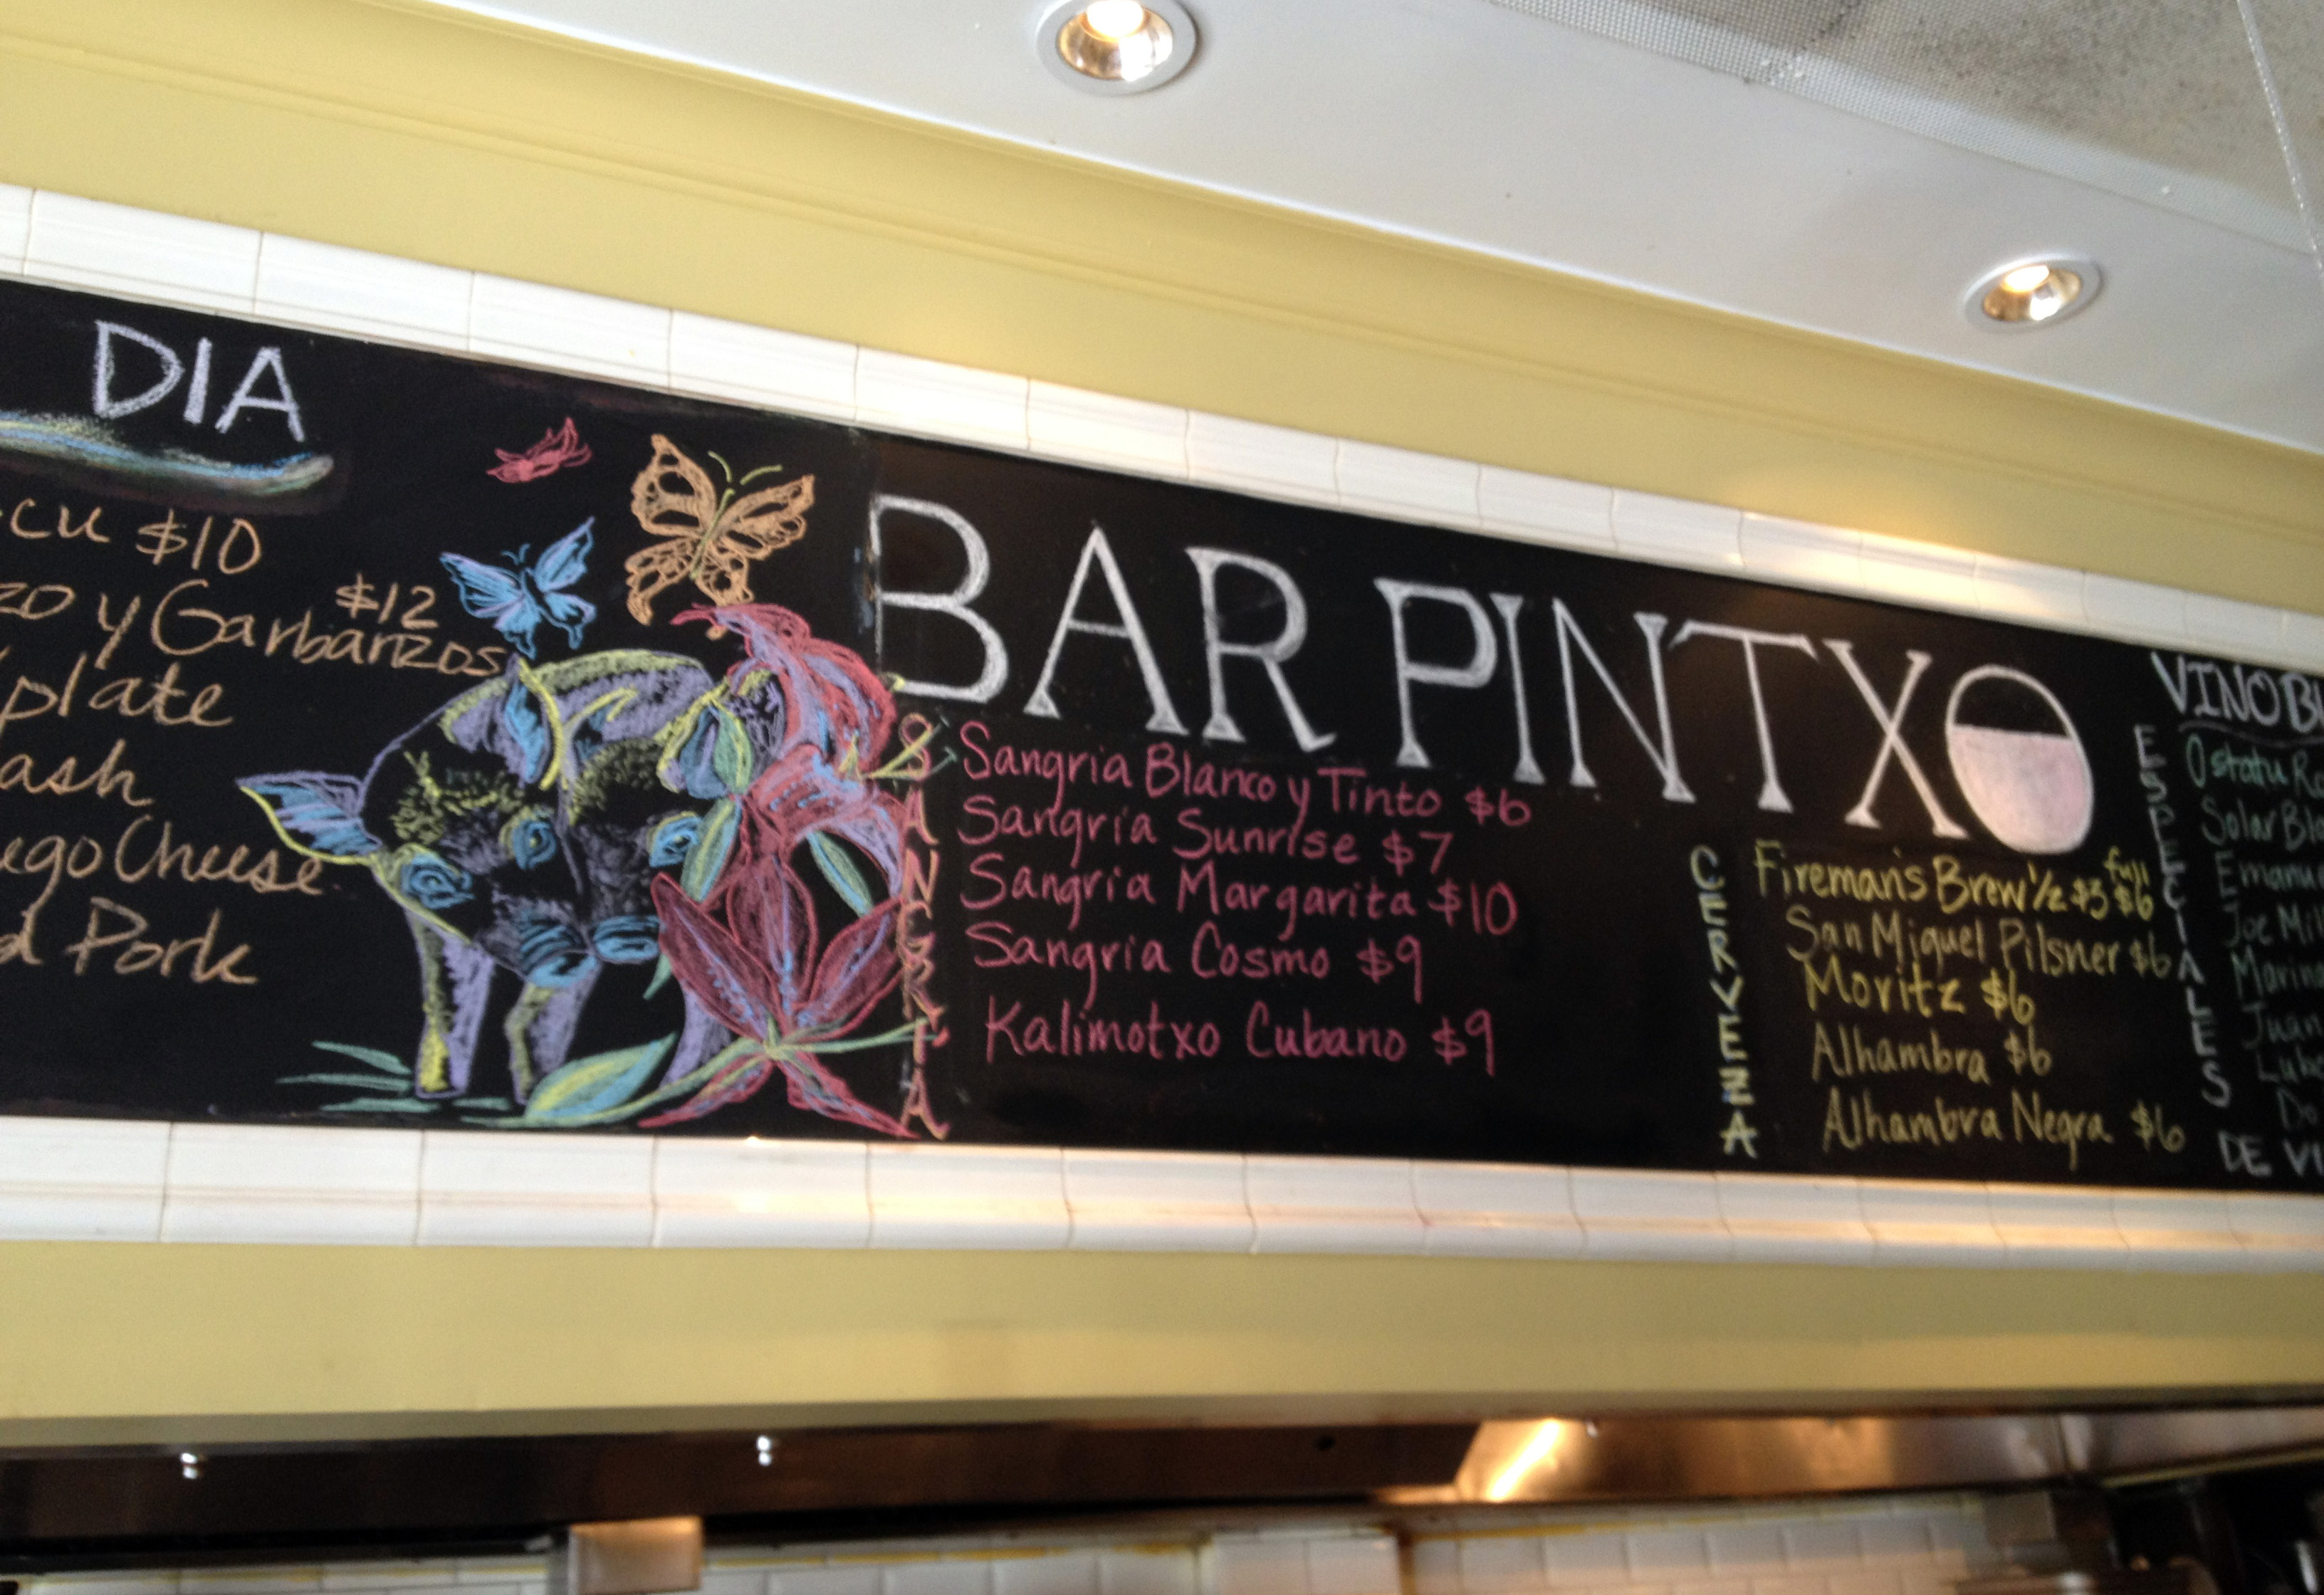 DIA
$10
$12
y Garbanzos
plate
Cheese
Pork
BAR PINTXO
SANGRIA
Sangria Blanco y Tinto $6
Sangria Sunrise $7
Sangria Margarita $10
Sangria Cosmo $9
Kalimotxo Cubano $9
CERVEZA
Fireman's Brew 1/2 $3 full $6
San Miguel Pilsner $6
Moritz $6
Alhambra $6
Alhambra Negra $6
VINO
ESPECIALES
DE
Ostatu
Solar
Joe